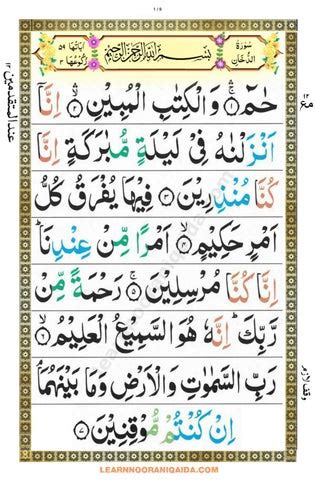 ١١٥
سُوْرَةُ الدُّخَانِ
بِسْمِ اللّٰهِ الرَّحْمٰنِ الرَّحِيْمِ
اٰيَاتُهَا ٥٩
رُكُوْعُهَا ٣
حٰمٓ ۚۛ ١ وَالْكِتٰبِ الْمُبِيْنِ ۙۛ ٢ اِنَّاۤ
اَنْزَلْنٰهُ فِىْ لَيْلَةٍ مُّبٰرَكَةٍ اِنَّا
كُنَّا مُنْذِرِيْنَ ٣ فِيْهَا يُفْرَقُ كُلُّ
اَمْرٍ حَكِيْمٍ ۙ ٤ اَمْرًا مِّنْ عِنْدِنَا ؕ
اِنَّا كُنَّا مُرْسِلِيْنَ ۚ ٥ رَحْمَةً مِّنْ
رَّبِّكَ ؕ اِنَّهٗ هُوَ السَّمِيْعُ الْعَلِيْمُ ۙ ٦
رَبِّ السَّمٰوٰتِ وَالْاَرْضِ وَمَا بَيْنَهُمَا ۘ
اِنْ كُنْتُمْ مُّوْقِنِيْنَ ٧
عند المتقدمين ١٢
وقف لازم
LEARNNOORANIQAIDA.COM